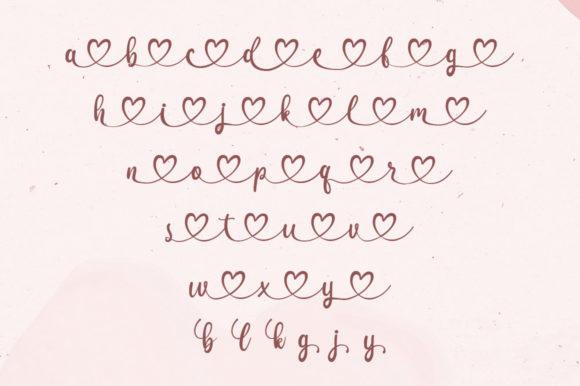 a b c d e f g
h i j k l m
n o p q r
s t u v
w x y
b l k g j y